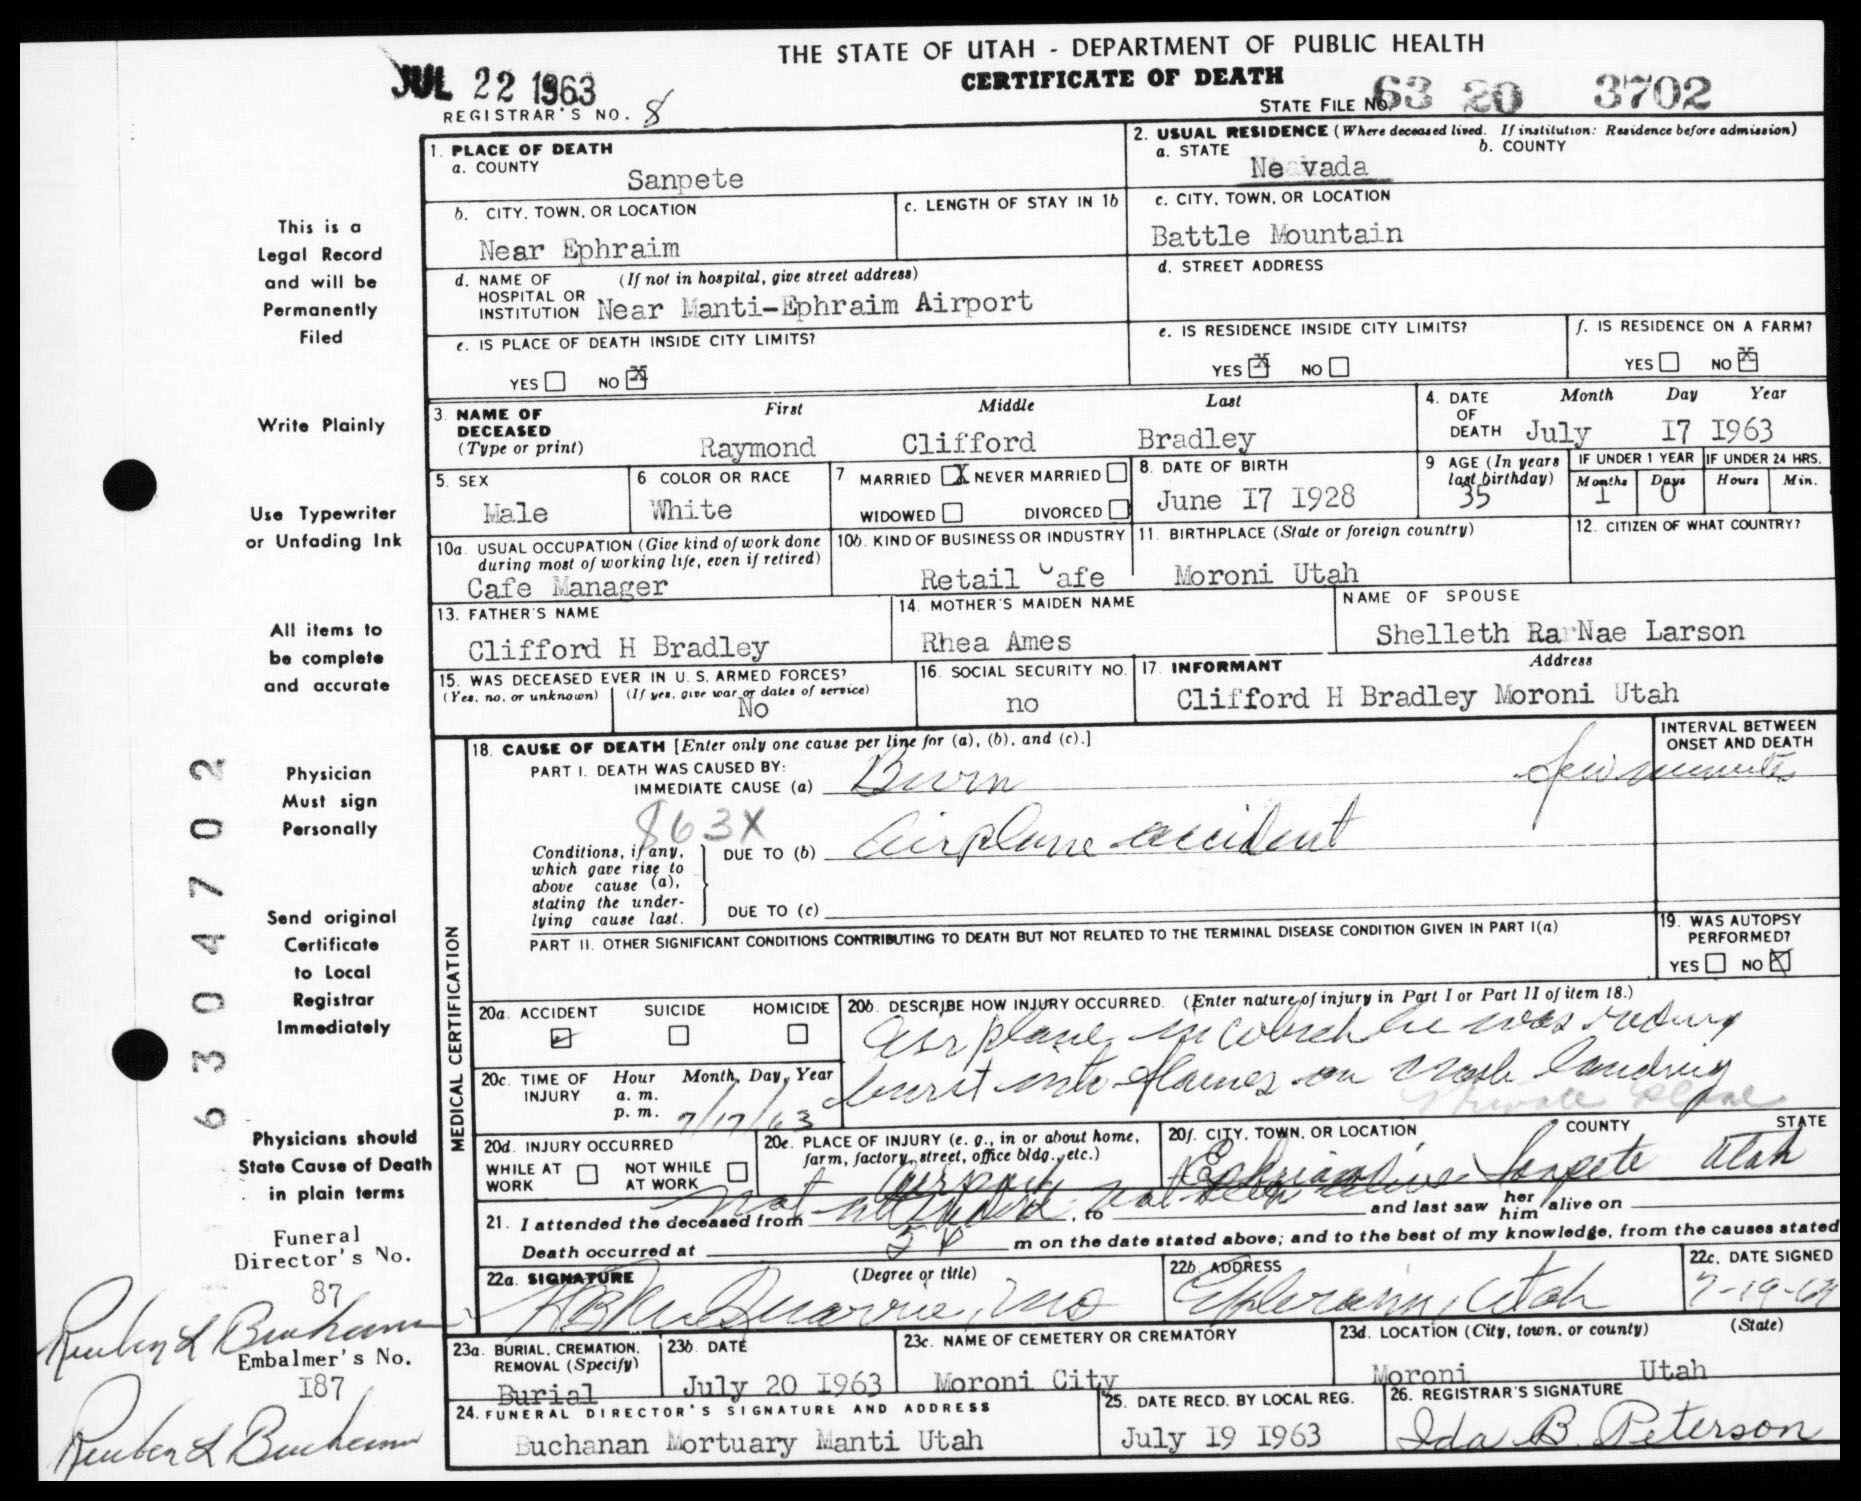 THE STATE OF UTAH - DEPARTMENT OF PUBLIC HEALTH
CERTIFICATE OF DEATH
JUL 22 1963
REGISTRAR'S NO. 8
STATE FILE NO. 63 20 3702
1. PLACE OF DEATH
a. COUNTY
Sanpete
2. USUAL RESIDENCE (Where deceased lived. If institution: Residence before admission)
a. STATE
b. COUNTY
Nevada
b. CITY, TOWN, OR LOCATION
Near Ephraim
c. LENGTH OF STAY IN 1b
c. CITY, TOWN, OR LOCATION
Battle Mountain
d. NAME OF HOSPITAL OR INSTITUTION
(If not in hospital, give street address)
Near Manti-Ephraim Airport
d. STREET ADDRESS
e. IS PLACE OF DEATH INSIDE CITY LIMITS?
YES NO X
e. IS RESIDENCE INSIDE CITY LIMITS?
YES X NO
f. IS RESIDENCE ON A FARM?
YES NO X
3. NAME OF DECEASED
(Type or print)
First Middle Last
Raymond Clifford Bradley
4. DATE OF DEATH
Month Day Year
July 17 1963
5. SEX
Male
6 COLOR OR RACE
White
7 MARRIED X NEVER MARRIED
WIDOWED DIVORCED
8. DATE OF BIRTH
June 17 1928
9 AGE (In years last birthday)
35
IF UNDER 1 YEAR
Months Days
1 0
IF UNDER 24 HRS.
Hours Min.
10a. USUAL OCCUPATION (Give kind of work done during most of working life, even if retired)
Cafe Manager
10b. KIND OF BUSINESS OR INDUSTRY
Retail Cafe
11. BIRTHPLACE (State or foreign country)
Moroni Utah
12. CITIZEN OF WHAT COUNTRY?
13. FATHER'S NAME
Clifford H Bradley
14. MOTHER'S MAIDEN NAME
Rhea Ames
NAME OF SPOUSE
Shelleth RaNae Larson
15. WAS DECEASED EVER IN U. S. ARMED FORCES?
(Yes, no, or unknown) (If yes, give war or dates of service)
No
16. SOCIAL SECURITY NO.
no
17. INFORMANT
Address
Clifford H Bradley Moroni Utah
MEDICAL CERTIFICATION
18. CAUSE OF DEATH [Enter only one cause per line for (a), (b), and (c).]
INTERVAL BETWEEN ONSET AND DEATH
PART I. DEATH WAS CAUSED BY:
IMMEDIATE CAUSE (a) Burn few minutes
863X
Conditions, if any, which gave rise to above cause (a), stating the underlying cause last.
DUE TO (b) Airplane accident
DUE TO (c)
PART II. OTHER SIGNIFICANT CONDITIONS CONTRIBUTING TO DEATH BUT NOT RELATED TO THE TERMINAL DISEASE CONDITION GIVEN IN PART I(a)
19. WAS AUTOPSY PERFORMED?
YES NO X
20a. ACCIDENT SUICIDE HOMICIDE
20b. DESCRIBE HOW INJURY OCCURRED. (Enter nature of injury in Part I or Part II of item 18.)
Air plane in which he was riding
burst into flames on crash landing
Private Plane
20c. TIME OF INJURY
Hour Month, Day, Year
a. m.
p. m.
7/17/63
20d. INJURY OCCURRED
WHILE AT WORK NOT WHILE AT WORK
20e. PLACE OF INJURY (e. g., in or about home, farm, factory, street, office bldg., etc.)
Airport
20f. CITY, TOWN, OR LOCATION COUNTY STATE
Ephraim Sanpete Utah
21. I attended the deceased from not attended, not seen alive, to and last saw her him alive on
Death occurred at 5 P m on the date stated above; and to the best of my knowledge, from the causes stated
22a. SIGNATURE (Degree or title)
McQuarrie, MD
22b. ADDRESS
Ephraim, Utah
22c. DATE SIGNED
7-19-63
23a. BURIAL, CREMATION, REMOVAL (Specify)
Burial
23b. DATE
July 20 1963
23c. NAME OF CEMETERY OR CREMATORY
Moroni City
23d. LOCATION (City, town, or county) (State)
Moroni Utah
24. FUNERAL DIRECTOR'S SIGNATURE AND ADDRESS
Buchanan Mortuary Manti Utah
25. DATE RECD. BY LOCAL REG.
July 19 1963
26. REGISTRAR'S SIGNATURE
Ida B. Peterson
This is a
Legal Record
and will be
Permanently
Filed
Write Plainly
Use Typewriter
or Unfading Ink
All items to
be complete
and accurate
Physician
Must sign
Personally
Send original
Certificate
to Local
Registrar
Immediately
Physicians should
State Cause of Death
in plain terms
Funeral
Director's No.
87
Reuben L Buchanan
Embalmer's No.
187
Reuben L Buchanan
6304702